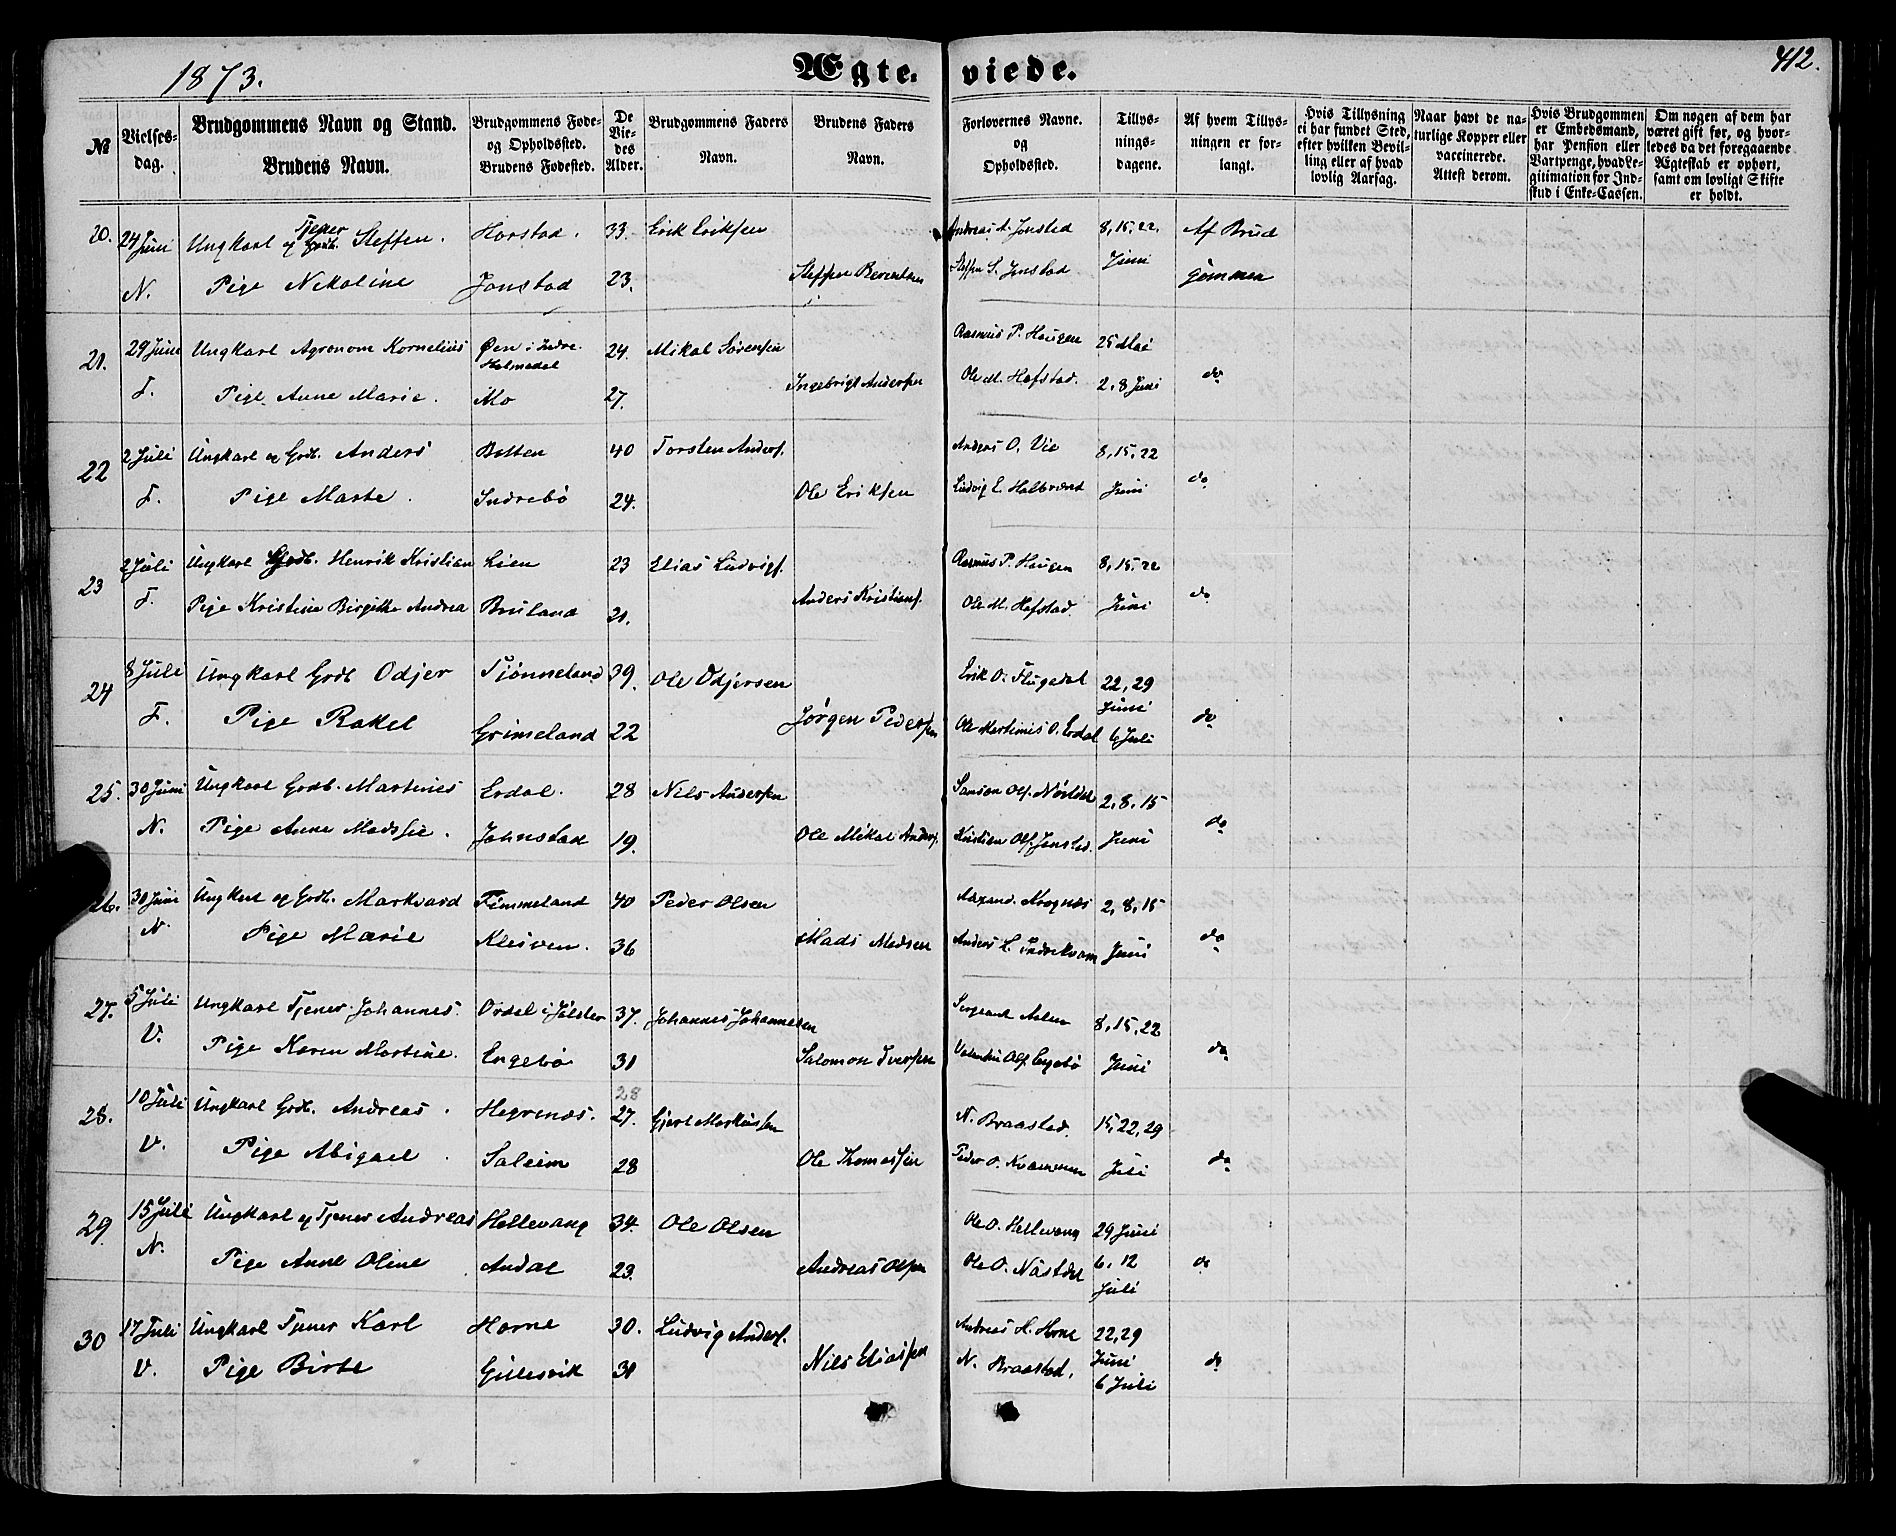 1873.
Ægte- viede.
412.
№
Vielses-
dag.
Brudgommens Navn og Stand.
Brudens Navn.
Brudgommens Føde-
og Opholdssted.
Brudens Fødested.
De
Vie-
des
Alder.
Brudgommens Faders
Navn.
Brudens Faders
Navn.
Forlovernes Navne.
og
Opholdssted.
Tillys-
nings-
dagene.
Af hvem Tillys-
ningen er for-
langt.
Hvis Tillysning
ei har fundet Sted,
efter hvilken Bevil-
ling eller af hvad
lovlig Aarsag.
Naar havt de na-
turlige Kopper eller
vaccinerede.
Attest derom.
Hvis Brudgommen
er Embedsmand,
har Pension eller
Vartpenge, hvad Le-
gitimation for Ind-
skud i Enke-Cassen.
Om nogen af dem har
været gift før, og hvor-
ledes da det foregaaende
Ægteskab er ophørt,
samt om lovligt Skifte
er holdt.
20. 24 Juni Ungkarl Tjener og Grdb. Steffen. Horstad. 33. Erik Eriksen Andreas A. Jonstad 8, 15, 22. Af Brud
N. Pige Nikoline Jonstad 23. Steffen Berentsen Steffen S. Jonstad Juni gommen
21. 29 Juni Ungkarl Agronom Kornelius Øen i Indre Holmedal 24. Mikal Sørensen Rasmus P. Haugen 25 Mai
F. Pige Anne Marie. Mo 27. Ingebrigt Andersen Ole M. Hafstad. 2, 8 Juni do
22 2 Juli Ungkarl og Grdb. Anders Botten 40 Torsten Anders. Anders O. Vie 8, 15, 22
F. Pige Marte. Indrebø 24. Ole Eriksen Ludvig E. Halbrend Juni do
23 2 Juli Ungkarl Grdb. Henrik Kristian Lien 23 Elias Ludvigs. Rasmus P. Haugen 8, 15, 22
F. Pige Kristine Birgitte Andrea Bruland 21. Anders Kristians. Ole M. Hafstad. Juni do
24 8 Juli Ungkarl Grdb Odjer Tjønneland 39. Ole Odjersen Erik O. Flugedal 22, 29 Juni
F. Pige Rakel Grimseland 22 Jørgen Pedersen Ole Martinus O. Erdal 6 Juli do
25. 30 Juni Ungkarl Grdb. Martinus Erdal. 28 Nils Andersen Samson Ols. 2, 8, 15
N. Pige Anne Madsie. Johnstad 19. Ole Mikal Anders. Kristian Ols. Jonstad. Juni do
26. 30 Juni Ungkarl og Grdb. Markvard Timmeland 40 Peder Olsen 2, 8, 15
N. Pige Marie Kleiven. 36 Mads Madsen Anders L. Indrekvam Juni do
27. 5 Juli Ungkarl Tjener Johannes. Ordal i Jølster 37. Johannes Johannesen Sergeant 8, 15, 22
V. Pige Karen Martine. Engebø 31 Salomon Iversen Valentin Ols. Engebø Juni do
28. 10 Juli Ungkarl Grdb. Andreas. Hegrenæs. 28 27. Gjert Markussen N. Braastad. 15, 22, 29
V. Pige Abigael. Saleim 28 Ole Thomassen Peder O. Juli do
29. 15 Juli Ungkarl og Tjener Andreas Hellevang 34. Ole Olsen Ole O. Hellevang 29 Juni
N. Pige Anne Oline Andal 23. Andreas Olsen Ole O. Nastdal 6, 12 Juli do
30 17 Juli Ungkarl Tjener Karl Horne 30. Ludvig Anders. Andreas H. Horne 22, 29 Juni
V. Pige Birte Gillesvik 31 Nils Eliassen N. Braastad. 6 Juli do